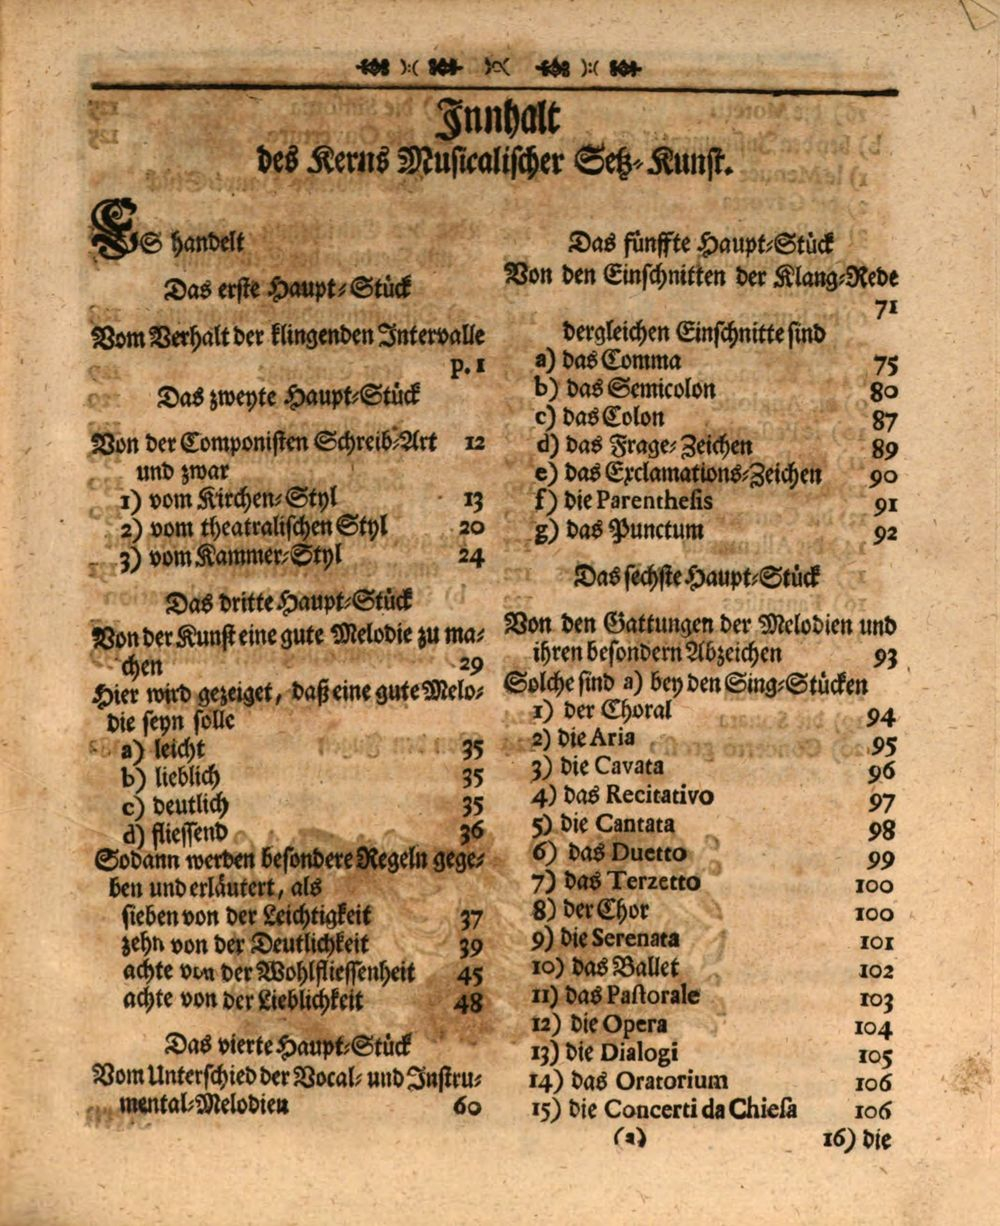 Innhalt
des Kerns Musicalischer Setz-Kunst.
ES handelt
Das erste Haupt-Stück
Vom Verhalt der klingenden Intervalle
p. 1
Das zweyte Haupt-Stück
Von der Componisten Schreib-Art 12
und zwar
1) vom Kirchen-Styl 13
2) vom theatralischen Styl 20
3) vom Kammer-Styl 24
Das dritte Haupt-Stück
Von der Kunst eine gute Melodie zu ma-
chen 29
Hier wird gezeiget, daß eine gute Melo-
die seyn solle
a) leicht 35
b) lieblich 35
c) deutlich 35
d) fliessend 36
Sodann werden besondere Regeln gege-
ben und erläutert, als
sieben von der Leichtigkeit 37
zehn von der Deutlichkeit 39
achte von der Wohlfliessenheit 45
achte von der Lieblichkeit 48
Das vierte Haupt-Stück
Vom Unterschied der Vocal- und Instru-
mental-Melodien 60
Das fünffte Haupt-Stück
Von den Einschnitten der Klang-Rede
71
dergleichen Einschnitte sind
a) das Comma 75
b) das Semicolon 80
c) das Colon 87
d) das Frage-Zeichen 89
e) das Exclamations-Zeichen 90
f) die Parenthesis 91
g) das Punctum 92
Das sechste Haupt-Stück
Von den Gattungen der Melodien und
ihren besondern Abzeichen 93
Solche sind a) bey den Sing-Stücken
1) der Choral 94
2) die Aria 95
3) die Cavata 96
4) das Recitativo 97
5) die Cantata 98
6) das Duetto 99
7) das Terzetto 100
8) der Chor 100
9) die Serenata 101
10) das Ballet 102
11) das Pastorale 103
12) die Opera 104
13) die Dialogi 105
14) das Oratorium 106
15) die Concerti da Chiesa 106
(a) 16) die